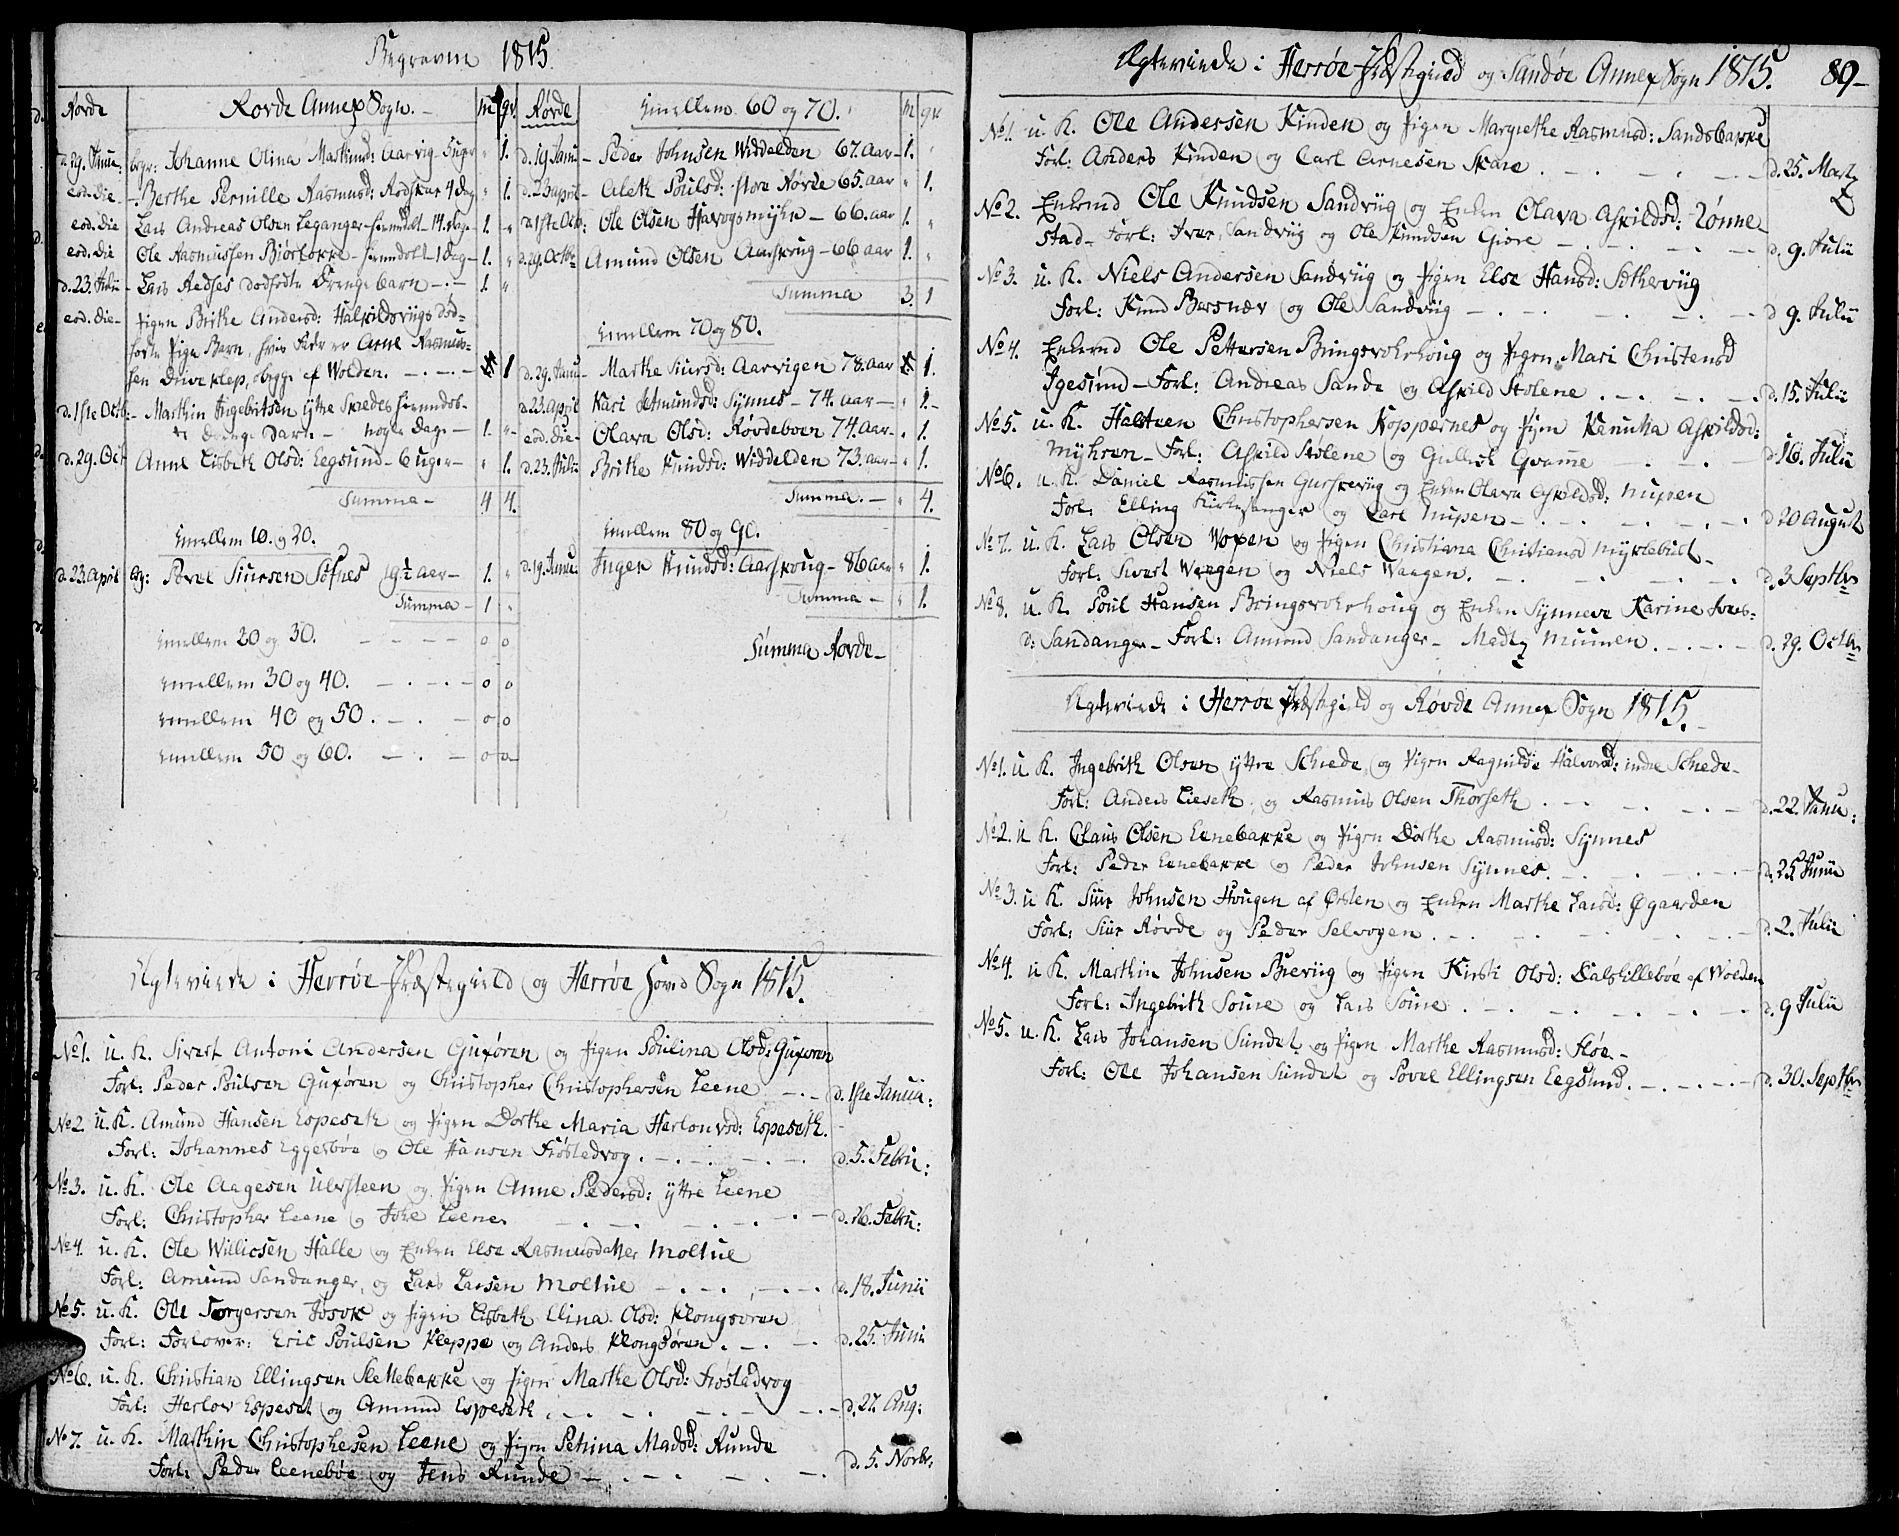 Begravne 1815.
Rovde
Rovde Annex Sogn.
m
qv.
d. 29. Janu: begr: Johanne Olina Mathisd: Aarvig 5 uger " 1.
eod. die - Berthe Pernille Rasmusd: Aodskar 4 Dag " 1.
eod. die Lars Andreas Olsen Leganger hiemdøbt 14 Dage 1. "
eod. die Ole Rasmussen Biørlokke hiemdøbt 1 Dag 1. "
d. 23. Julii Lars Aedses dødfødte Drengebarn 1 "
eod. die - Pigen Brithe Andersd: Halkildsviigs død-
fødte Pige Barn, hvis Fader er Arne Rasmus-
sen Driveklep, begge af Wolden. 1
d. 1ste Octb: - Mathin Ingebritsen yttre Skredes hiemdøb-
te Drenge Barn - nogle Dage - 1. "
d. 29. Oct Anne Lisbeth Olsd: Eegsund - 6 uger - " 1.
Summa - 4 4.
imellem 10. og 20.
d. 23. April bg: Povel Siursen Søfnes 19½ aar - 1. "
Summa - 1 "
imellem 20 og 30. o o
imellem 30 og 40. o o
imellem 40 og 50. o o
imellem 50 og 60. o o
Røvde
imellem 60 og 70.
m
qv
d. 19 Janu - Peder Johnsen Widdelden 67. aar - 1. "
d. 23 april - Aleth Poulsd: store Nørve 65. aar " 1.
d. 1ste Oct: Ole Olsen Havogsmyhr - 66. aar 1. "
d. 29. Octbr Amund Olsen Aarskoug - 66 aar 1. "
Summa 3. 1
imellem 70 og 80.
d. 29. Janu - Marthe Siursd: Aarvigen 78. aar 1.
d. 23. April Kari Amundsd: Synnes - 74. aar " 1.
eod. die - Olava Olsd: Røvdeboen 74. aar " 1.
d. 23. Julii Brithe Knudsd: Widdelden 73. aar " 1.
Summa. - " 4.
imellem 80 og 90.
d. 19. Janu: Inger Knudsd: Aarskoug - 86 aar " 1.
Summa - " 1.
Summa Rovde -
Ægteviede i Herrøe Præstegield og Herrøe Hoved Sogn 1815.
No 1. u. K. Sivert Antoni Andersen Gurøren og Pigen Poulina Olsd: Gurøren
Forl: Peder Poulsen Gurøren og Christopher Christophersen Leene d. 1ste Janua:
No 2. u. K. Amund Hansen Espeseth og Pigen Dorthe Maria Herlovsd: Espeseth.
Forl: Johannes Eggesbøe og Ole Hansen Frøstadvog. d. 5. Febru:
No 3. u. K. Ole Aagesen Ulvsteen og Pigen Anne Pedersd: yttre Leene
Forl: Christopher Leene og Johe Leene. d. 26. Febru:
No 4. u. K. Ole Willicsen Halle og Enken Else Rasmusdatter Moltue
Forl: Amund Sandanger og Lars Larsen Moltue d. 18. Junii
No 5. u. K. Ole Torgersen Josok og Pigen Lisbeth Elina Olsd: Klongsøren
Forl: Forlover: Eric Poulsen Kleppe og Anders Klongsøren. d. 25. Juni
No 6. u. K. Christian Ellingsen Slettebakke og Pigen Marthe Olsd: Frøstadvog
Forl: Herlov Espeset og Amund Espeseth. d. 27. Aug:
No 7. u. K. Mathin Christophesen Leene og Pigen Petrina Madsd: Runde
Forl: Peder Leenebøe og Jens Runde d. 5. Novbr:
Ægteviede i Herrøe Præstegield og Sandøe Annex Sogn 1815. 89-
No 1. u. K. Ole Andersen Kinden og Pigen Margrethe Rasmusd: Sandsbakke
Forl: Anders Kinden og Carl Arnesen Skare d. 25. Marty
No 2. Enkemd Ole Knudsen Sandviig og Enken Olava Askildsd: Rønne-
stad - Forl: Iver Sandviig og Ole Knudsen Giøre d. 9. Julii
No 3. u. K. Niels Andersen Sandviig og Pigen Else Hansd: Sætherviig
Forl: Knud Barsnæv og Ole Sandviig d. 9. Julii
No 4. Enkemd Ole Pettersen Bringsvorhoug og Pigen Mari Christensd
Igesund - Forl: Andreas Sande og Askild Stolene d. 15. Julii
No 5. u. K. Halsteen Christophersen Koppernes og Pigen Kanutta Askildsd:
Myhren - Forl: Askild Stolene og Gullich Qvamme d. 16. Julii
No 6. u. K. Daniel Rasmussen Gurskeviig og Enken Olava Askildsd: Nupen
Forl: Elling Kirkesanger og Carl Nupen d. 20 August
No 7. u. K. Lars Olsen Voxen og Pigen Christiana Christiansd Myklebust
Forl: Sivert Waagen og Niels Waagen. d. 3 Septbr
No 8. u. K. Poul Hansen Bringsvorhoug og Enken Synneve Karine Ivers-
d: Sandanger - Forl: Amund Sandanger - Mads Muunen. d. 29. Octbr
Ægteviede i Herrøe Præstegield og Røvde Annex Sogn 1815.
No 1. u. K. Ingebrith Olsen yttre Schrede og Pigen Ragnilde Halvorsd: indre Schrede
Forl: Anders Lieseth og Rasmus Olsen Thorseth d. 22. Janu:
No 2. u K. Claus Olsen Ennebakke og Pigen Dorthe Rasmusd: Synnes
Forl: Peder Ennebakke og Peder Johnsen Synnes. d. 25 Junii
No 3. u K. Siur Johnsen Hougen af Ørsten og Enken Marthe Larsd: Øgaarden
Forl: Siur Røvde og Peder Selvogen. d. 2. Julii
No 4. u K. Mathin Johnsen Breviig og Pigen Kirsti Olsd: Dalskillebøe af Wolden
Forl: Ingebrith Soure og Lars Soure d. 9 Julii
No 5. u. K. Lars Johansen Sundet og Pigen Marthe Rasmusd: Fløe -
Forl: Ole Johansen Sundet og Povel Ellingsen Eegsund. d. 30. Septbr